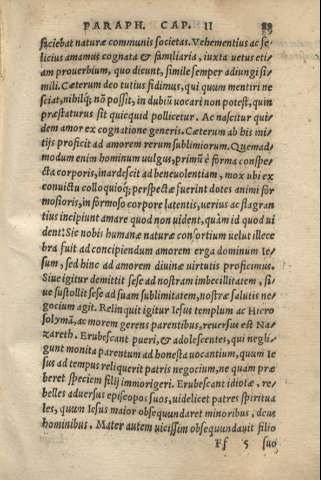 PARAPH. CAP. II 89
faciebat naturæ communis societas. Vehementius ac fe-
licius amamus cognata & familiaria, iuxta uetus eti-
am prouerbium, quo dicunt, simile semper adiungi si-
mili. Cæterum deo tutius fidimus, qui quum mentiri ne
sciat, nihilq́; nõ possit, in dubiũ uocari non potest, quin
præstaturus sit quicquid pollicetur. Ac nascitur qui-
dem amor ex cognatione generis. Cæterum ab his ini-
tijs proficit ad amorem rerum sublimiorum. Quemad-
modum enim hominum uulgus, primũ è forma conspe-
cta corporis, inardescit ad beneuolentiam, mox ubi ex
conuictu colloquioq́; perspectæ fuerint dotes animi for
mosioris, in formoso corpore latentis, uerius ac flagran
tius incipiunt amare quod non uident, quàm id quod ui
dent: Sic nobis humanæ naturæ consortium uelut illece
bra fuit ad concipiendum amorem erga dominum Ie-
sum, sed hinc ad amorem diuinæ uirtutis proficimus.
Siue igitur demittit sese ad nostram imbecillitatem, si-
ue sustollit sese ad suam sublimitatem, nostræ salutis ne-
gocium agit. Relinquit igitur Iesus templum ac Hiero
solymã, ac morem gerens parentibus, reuersus est Na-
zareth. Erubescant pueri, & adolescentes, qui negli-
gunt monita parentum ad honesta uocantium, quum Ie
sus ad tempus reliquerit patris negocium, ne quam præ
beret speciem filij immorigeri. Erubescant idiotæ, re-
belles aduersus episcopos suos, uidelicet patres spiritua
les, quum Iesus maior obsequundaret minoribus, deus
hominibus. Mater autem uicissim obsequundauit filio
Ff 5 suo